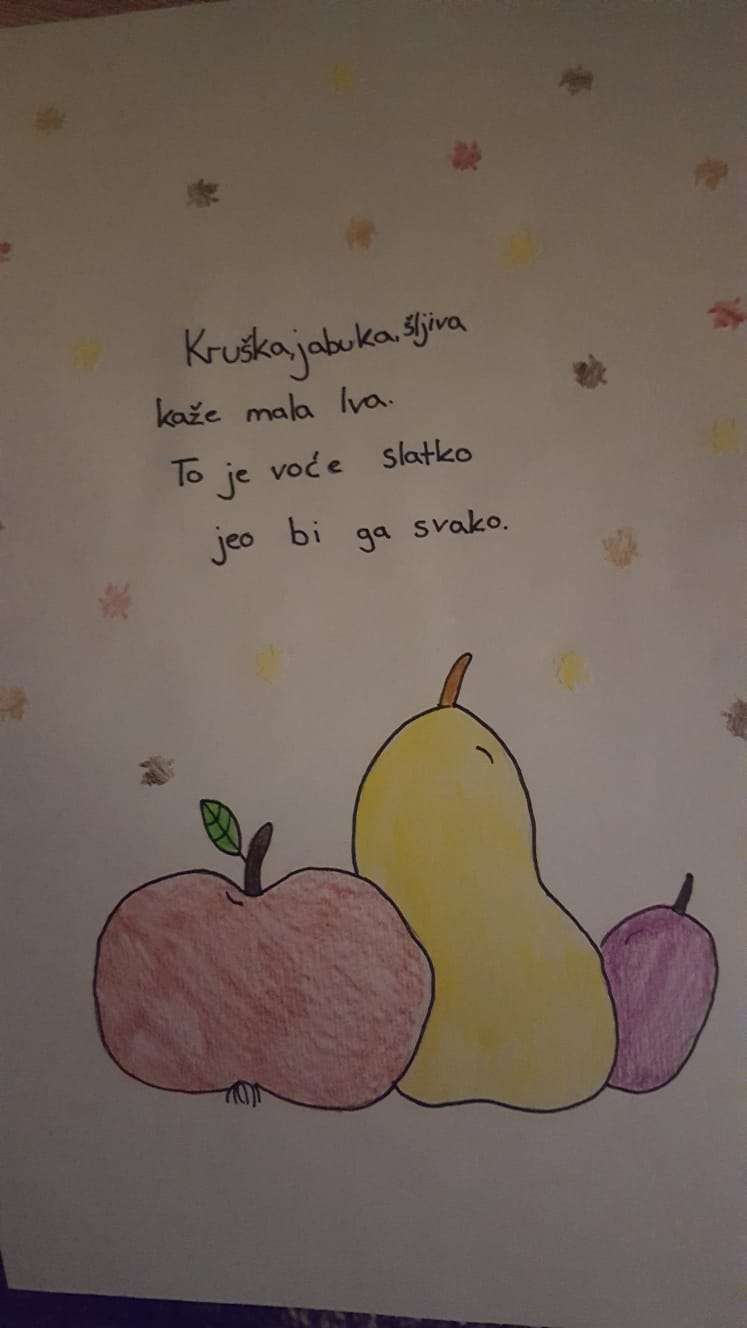 Kruška, jabuka, šljiva
kaže mala Iva.
To je voće slatko
jeo bi ga svako.